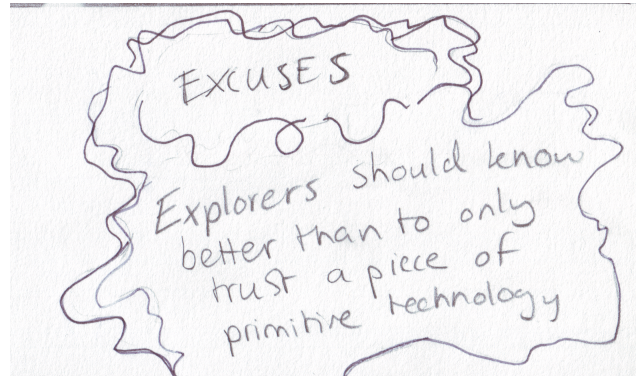 EXCUSES
Explorers should know
better than to only
trust a piece of
primitive technology